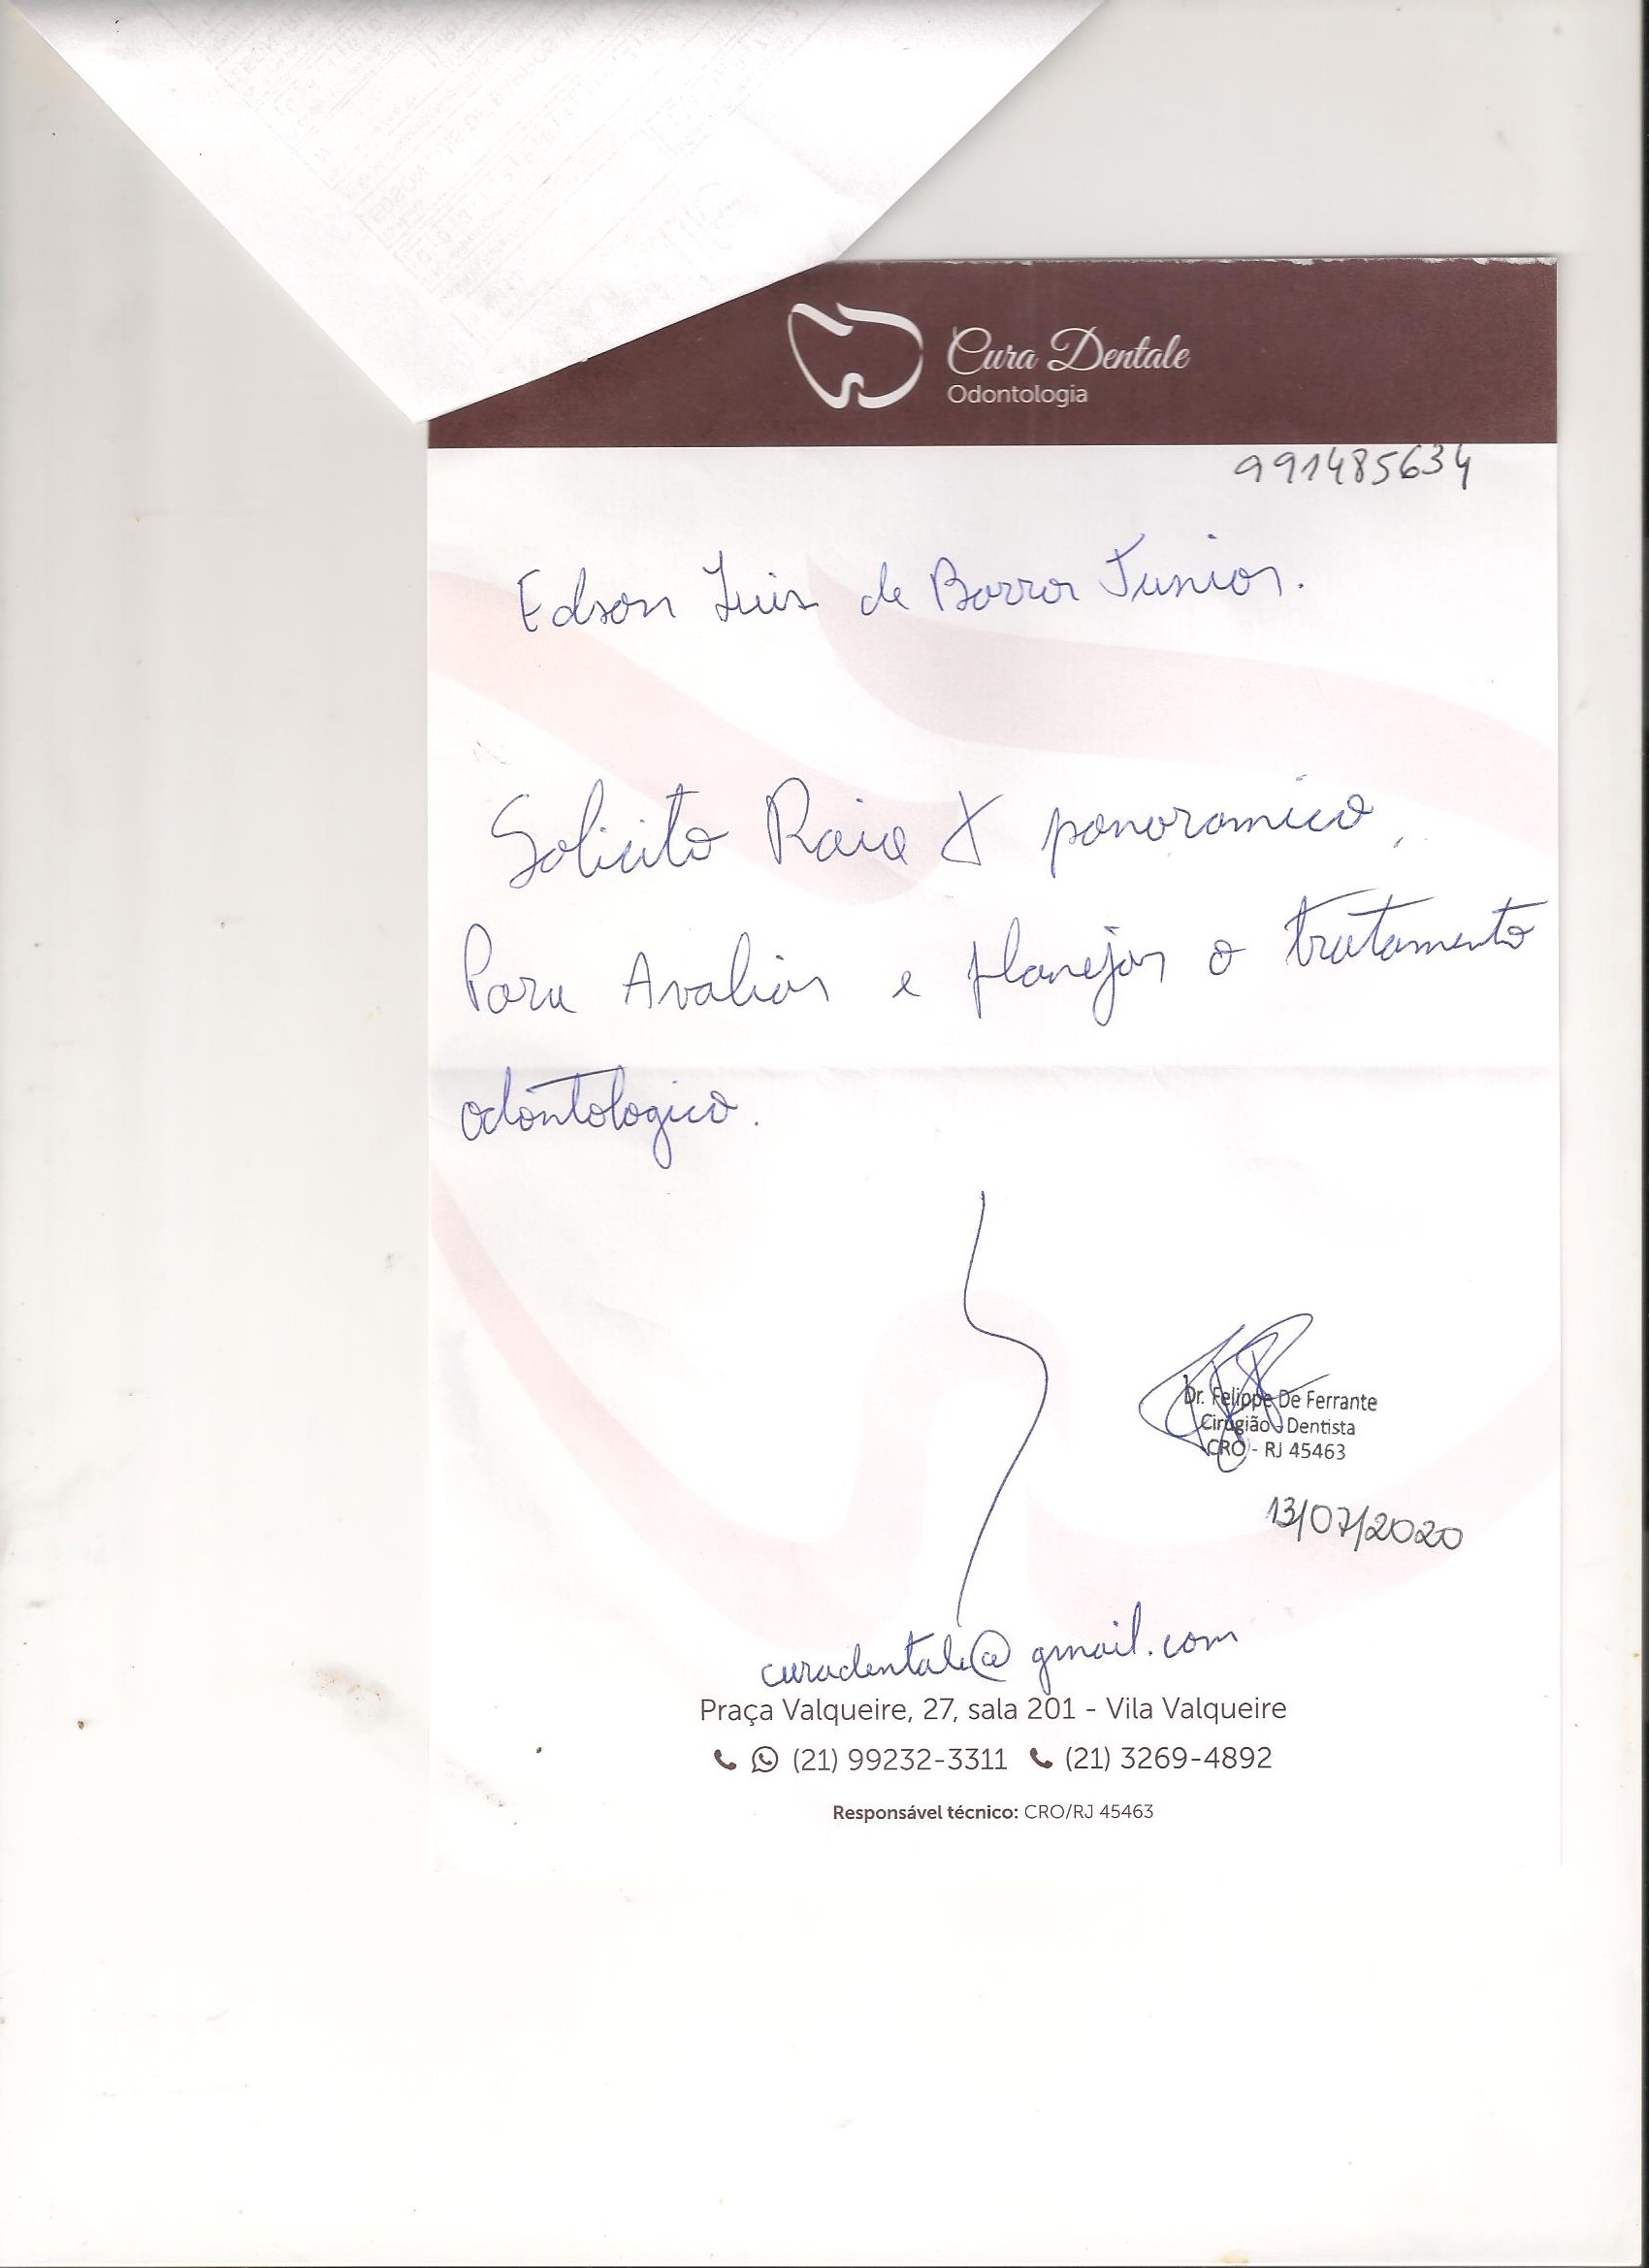 Cura Dentale
Odontologia
991485634
Edson Luis de Barros Junior.
Solicito Raio X panoramico,
Para Avaliar e planejar o tratamento
odontologico.
Dr. Felippe De Ferrante
Cirugião - Dentista
CRO - RJ 45463
13/07/2020
curadentale@gmail.com
Praça Valqueire, 27, sala 201 - Vila Valqueire
(21) 99232-3311 (21) 3269-4892
Responsável técnico: CRO/RJ 45463